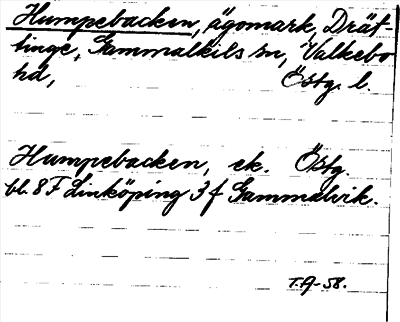 Humpebacken, ägomark, Drät-
tinge, Gammalkils sn, Valkebo
hd, Östg. l.
Humpebacken, ek. Östg.
bl. 8 F Linköping 3 f Gammalvik.
T.A-58.